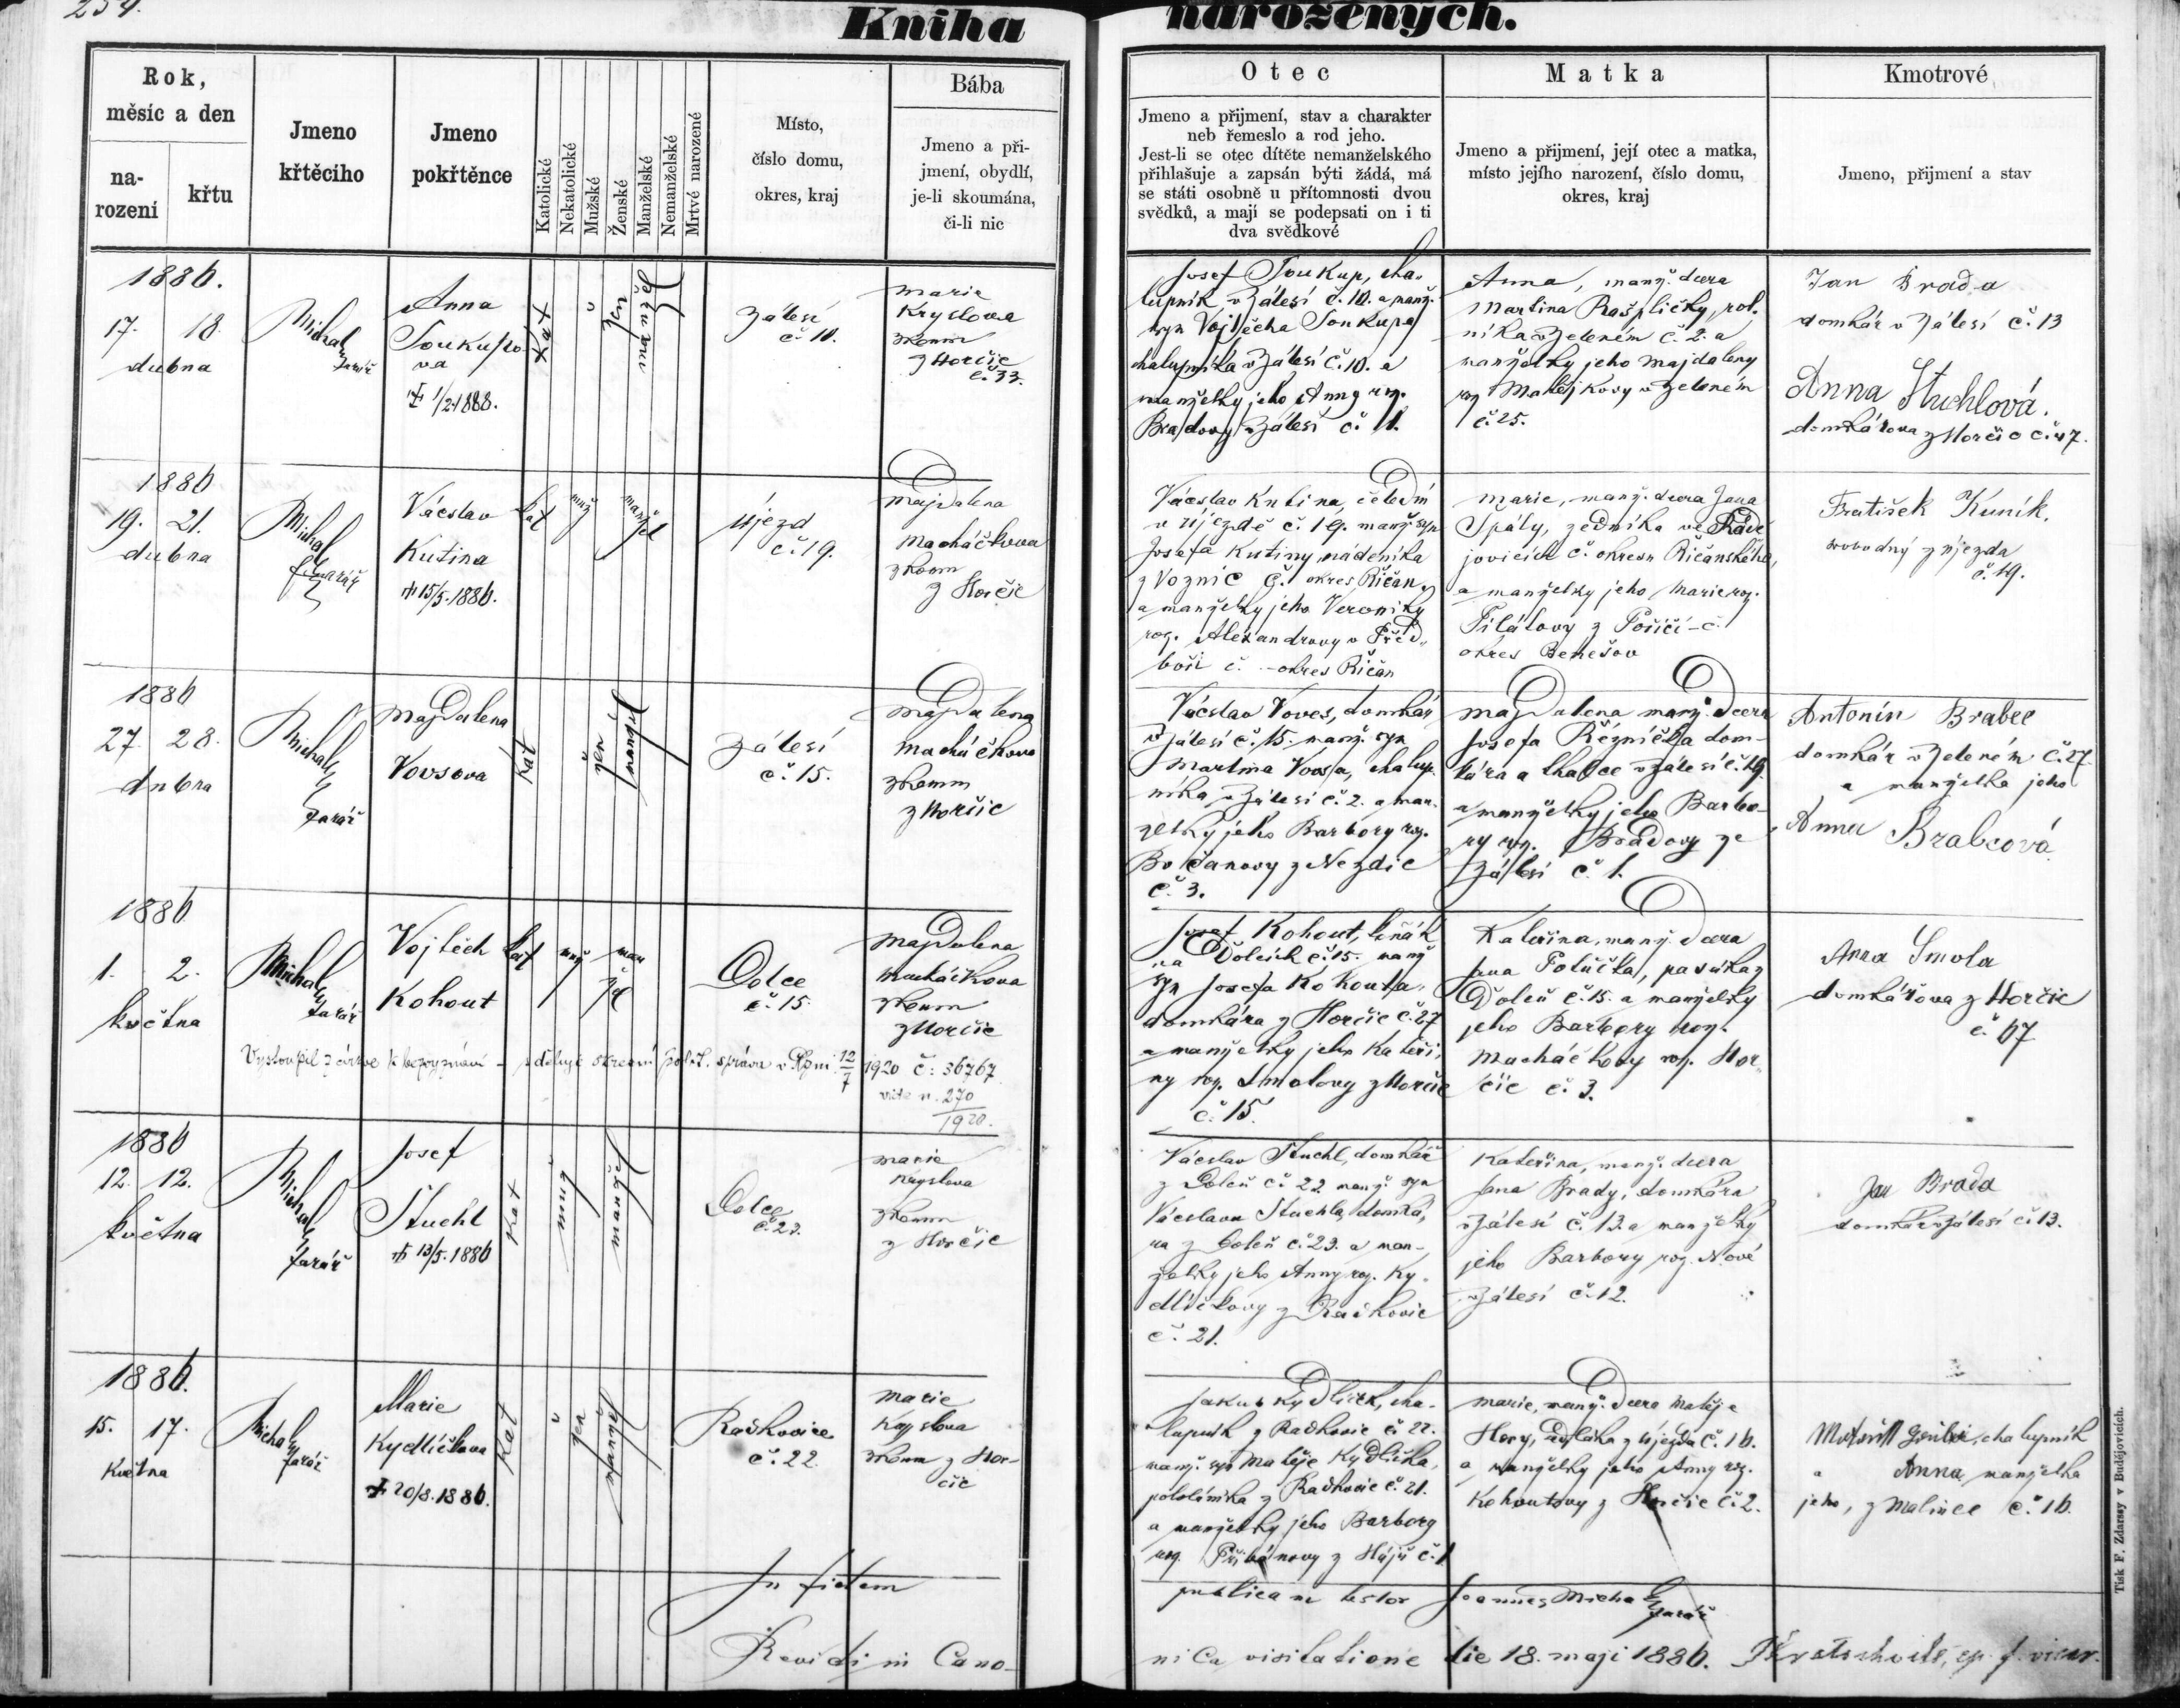 254.
Kniha narozených.
Rok,
měsíc a den
na-
rození
křtu
Jmeno
křtěcího
Jmeno
pokřtěnce
Katolické
Nekatolické
Mužské
Ženské
Manželské
Nemanželské
Mrtvé narozené
Místo,
číslo domu,
okres, kraj
Bába
Jmeno a při-
jmení, obydlí,
je-li skoumána,
či-li nic
Otec
Jmeno a přijmení, stav a charakter
neb řemeslo a rod jeho.
Jest-li se otec dítěte nemanželského
přihlašuje a zapsán býti žádá, má
se státi osobně u přítomnosti dvou
svědků, a mají se podepsati on i ti
dva svědkové
Matka
Jmeno a přijmení, její otec a matka,
místo jejího narození, číslo domu,
okres, kraj
Kmotrové
Jmeno, přijmení a stav
1886.
17. 18.
dubna
Michal
farář
Anna
Soukupo-
va
† 1/2 1888.
Kat
žen
manžel
Zálesí
č. 10.
Marie
Kryslova
zkoum
z Horčic
č. 33.
Josef Soukup, cha-
lupník v Zálesí č. 10. a manž.
syn Vojtěcha Soukupa
chalupníka v Zálesí č. 10. a
manželky jeho Anny roz.
Bradovy v Zálesí č. 11.
Anna, manž. dcera
Martina Rašpličky, rol.
níka v Zeleném č. 2. a
manželky jeho Majdaleny
roz Matějkovy v Zeleném
č. 25.
Jan Brada
domkár v Zálesí č. 13
Anna Stuchlová.
domkářova z Horčic č. 47.
1886
19. 21.
dubna
Michal
farář
Václav
Kutina
† 15/5. 1886.
kat
muž
manžel
Újezd
č. 19.
Majdalena
Macháčkova
zkoum
z Horčic
Václav Kutina, čeledín
v Újezdě č. 19. manž. syn
Josefa Kutiny, nádeníka
z Voznic č. okres Říčany
a manželky jeho Veroniky
roz. Alexandrovy v Před-
boři č. - okres Říčan
Marie, manž. dcera Jana
Spály, zedníka ve Radě
jovicích č. okresu Řičanského,
a manželky jeho Marie roz.
Pilátovy z Poříčí - č.
okres Benešov
Fratišek Kuník,
svobodný z Újezda
č. 19.
1886
27. 28.
dubna
Michal
farář
Majdalena
Vovsova
Kat
žen
manžel
Zálesí
č. 15.
Majdalena
Macháčkova
zkoum
z Horčic
Václav Voves, domkář
v Zálesí č. 15. manž. syn
Martina Vovsa, chalup.
níka v Zálesí č. 2. a man.
želky jeho Barbory roz.
Bočanovy z Nezdic
č. 3.
Majdalena manž. dcera
Josefa Řezníčka dom-
kára a tkalce v Zálesí č. 19.
a manželky jeho Barbo-
ry roz. Bradovy ze
Zálesí č. 1.
Antonín Brabec
domkár v Zeleném č. 27
a manželka jeho
Anna Brabcová
1886
1. 2.
května
Michal
farář
Vojtěch
Kohout
kat
muž
man
žel
Dolce
č. 15.
Majdalena
Macháčkova
zkoum
z Horčic
Vystoupil z církve k bezvyznání - sděluje okresní polit. správa v 12/7 1920 č: 36767
1920.
Josef Kohout,
na Dolcich č. 15. manž
syn Josefa Kohouta,
domkára z Horčic č. 27
a manželky jeho Kateři-
ny roz. Smolovy z Horčic
č. 15.
Kateřina, manž. dcera
Jana Potůčka, pasáka z
Doleň č. 15. a manželky
jeho Barbory roz.
Macháčkovy roz. Hor-
čic č. 3.
Anna Smola
domkářova z Horčic
č. 67
1886
12. 12.
května
Michal
farář
Josef
Stuchl
† 13/5. 1886
kat
muž
manžel
Dolce
č. 23.
Marie
Kryslova
zkoum
z Horčic
Václav Stuchl, domkář
z Doleň č. 22. manž. syn
Václava Stuchla, domká,
ra z Doleň č. 23. a man-
želky jeho Anny roz. Ky-
dlíčkovy z Radkovic
č. 21.
Kateřina, manž. dcera
Jana Brady, domkára
v Zálesí č. 12. a manželky
jeho Barbory roz. Nové
v Zálesí č. 12.
Jan Brada
domkár v Zálesí č. 13.
1886.
15. 17.
Května
Michal
farář
Marie
Kydlíčkova
† 20/8. 1886.
Kat
žen
manžel
Radkovice
č. 22.
Marie
Kryslova
zkoum z Hor-
čic
Jakub Kydlíček, cha-
lupník z Radkovic č. 22.
manž. syn Matěje Kydlíčka,
pololáníka z Radkovic č. 21.
a manželky jeho Barbory
roz. Přibánovy z Hájů č. 1
Marie, manž. dcera Matěje
Hory, sedláka z Újezda č. 16.
a manželky jeho Anny roz.
Kohoutovy z Horčic č. 2.
chalupník
a Anna, manželka
jeho, z Malince č. 16.
In fidem publicam testor Joannes Michal
farář
Revidi in Cano-
nica visitatione die 18. maji 1886.
Tisk F. Zdarssy v Budějovicích.